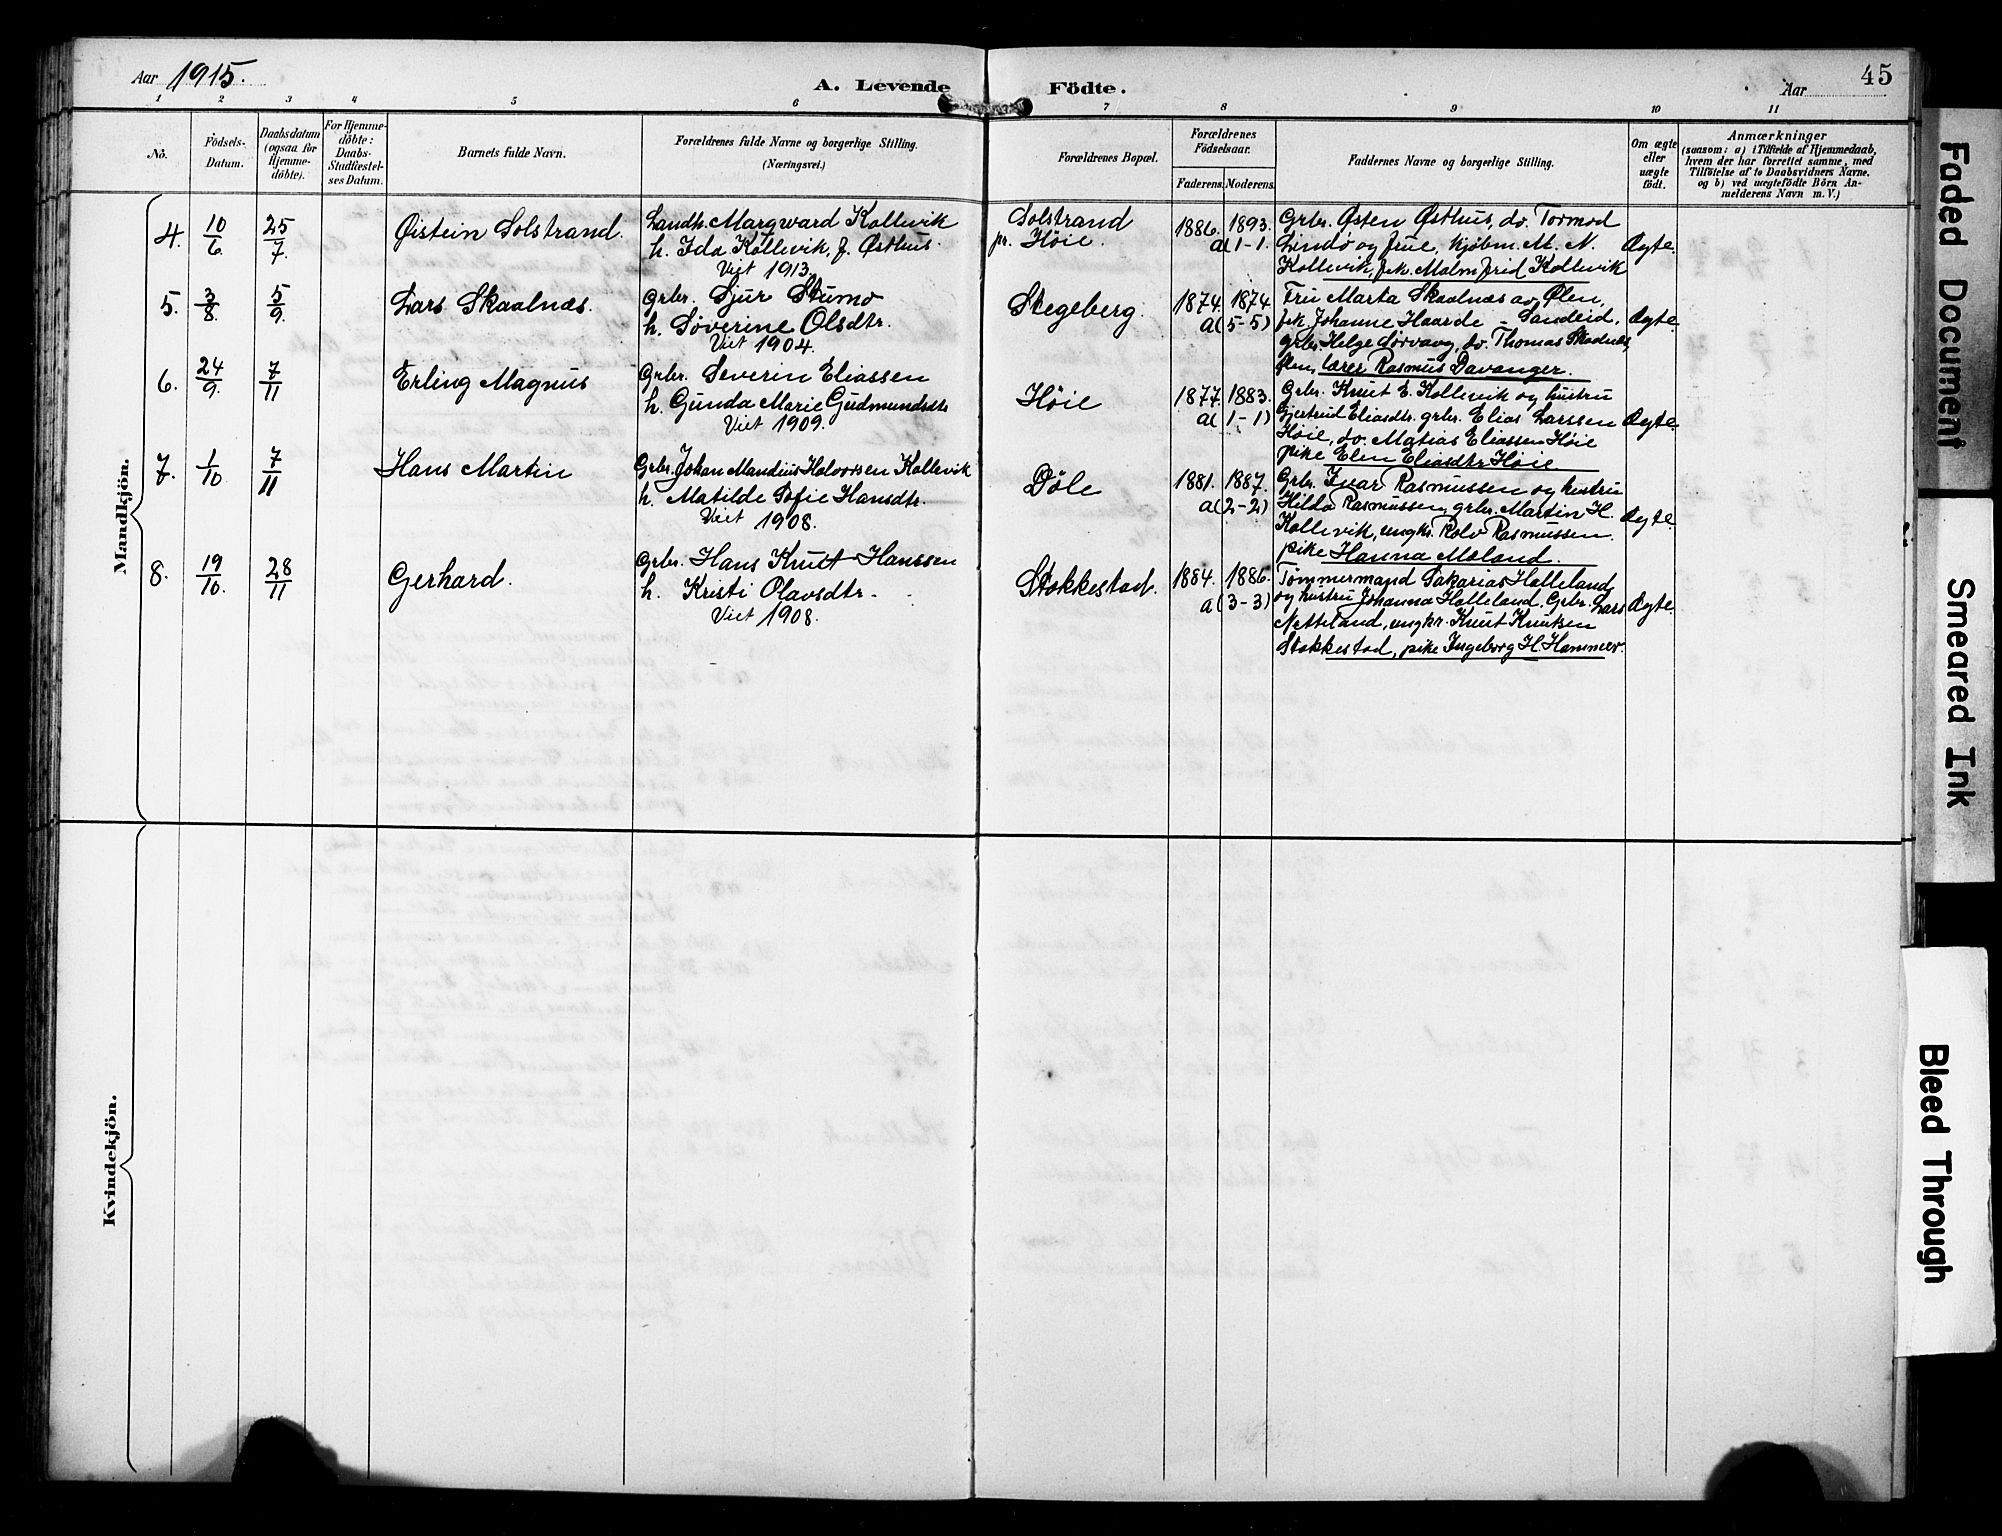 Aar 1915.
A. Levende Födte.
Aar
45
1 2 3 4 5 6 7 8 9 10 11
No.
Födsels-Datum.
Daabsdatum (ogsaa for Hjemme-döbte).
For Hjemme-döbte: Daabs-Stadfæstel-ses Datum.
Barnets fulde Navn.
Forældrenes fulde Navne og borgerlige Stilling. (Næringsvei.)
Forældrenes Bopæl.
Forældrenes Födselsaar.
Faderens. Moderens.
Faddernes Navne og borgerlige Stilling.
Om ægte eller uægte födt.
Anmærkninger
(saasom: a) i Tilfælde af Hjemmedaab,
hvem der har forrettet samme, med
Tilföielse af to Daabsvidners Navne.
og b) ved uægtefödte Börn An-
melderens Navn m. V.)
Mandkjön.
4. 10/6. 25/7. Øistein Solstrand.
Landh. Margward Kollevik
h. Ida Kollevik, f. Østhus.
Viet 1913.
Solstrand
pr. Höie.
1886. 1893.
a(1-1.
Grbr. Østen Østhus, do. Tormod
Lindø og frue, kjöbm. M. N.
Kollevik, frk. Malmfrid Kollevik
Ægte.
5. 3/8. 5/9. Lars Skaalnæs.
Grbr. Sjur Stumo
h. Söverine Olsdtr.
Viet 1904.
Stegeberg.
1874. 1874
a(5-5)
Fru Marta Skaalnæs av Ølen,
frk. Johanne Haarde - Sandeid.
grbr. Helge Sørvaag, do. Thomas Skaalnæs,
Ølen, lærer Rasmus Davanger.
Ægte
6. 24/9. 7/11 Erling Magnus
Grbr. Severin Eliassen
h. Gunda Marie Gudmundsdtr
Viet 1909.
Höie
1877. 1883.
a(1-1)
Grbr. Knut E. Kollevik og hustru
Gjertrud Eliasdtr. grbr. Elias Larssen
Höie, do. Matias Eliassen Höie
pike Elen Eliasdtr Höie
Ægte.
7. 1/10 7/11 Hans Martin
Grbr. Johan Mandius Halvorsen Kollevik
h. Matilde Sofie Hansdtr.
Viet 1908.
Döle
1881. 1887.
a(2-2)
Grbr. Ivar Rasmussen og hustru
Hilda Rasmussen, grbr. Martin H.
Kollevik, ungkr. Rolv Rasmussen.
pike Hanna Mæland.
Ægte.
8. 19/10. 28/11 Gerhard.
Grbr. Hans Knut Hanssen
h. Kristi Olavsdtr.
Viet 1908.
Stokkestad.
1884. 1886.
a(3-3)
Tömmermand Sakarias Halleland
og hustru Johanna Halleland, Grbr. Lars
Netteland, ungkr. Knut Knutsen
Stokkestad, pike Ingeborg H. Hammer.
Ægte.
Kvindekjön.
Faded Document
Smeared Ink
Bleed Through